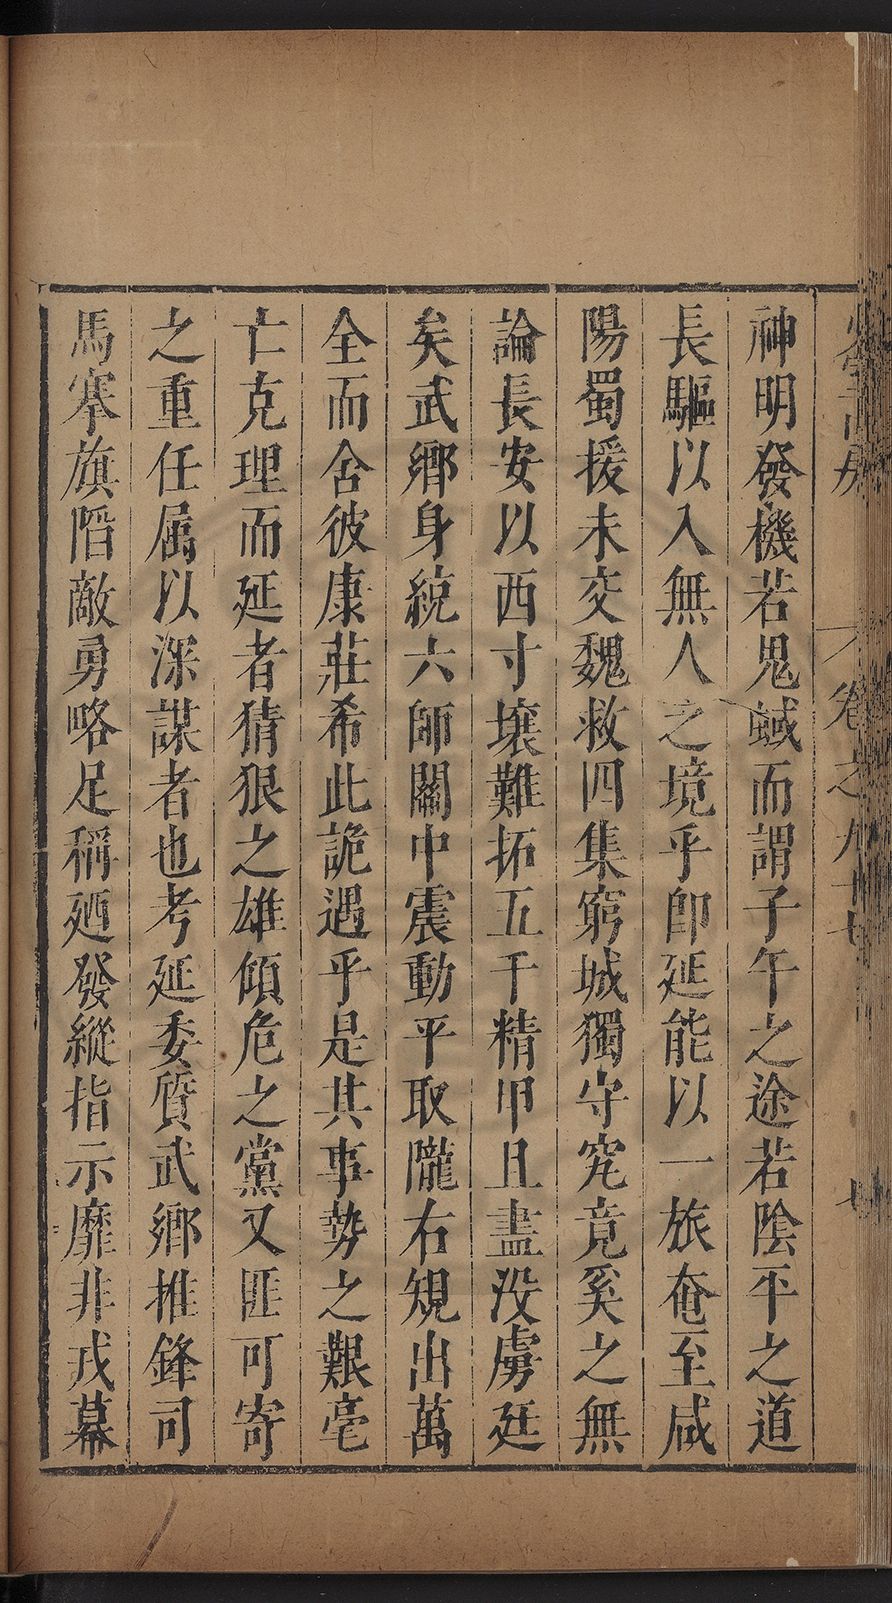 卷之九十七
神明發機若鬼蜮而謂子午之途若陰平之道
長驅以入無人之境乎卽延能以一旅奄至咸
陽蜀援未交魏救四集窮城獨守究竟奚之無
論長安以西寸壤難拓五千精甲且盡没虜廷
矣武鄉身統六師關中震動平取隴右規出萬
全而舍彼康莊希此詭遇乎是其事勢之艱毫
亡克理而延者猜狠之雄傾危之黨又匪可寄
之重任屬以深謀者也考延委質武鄉推鋒司
馬搴旗𨹧敵勇略足稱廼發縱指示靡非戎幕